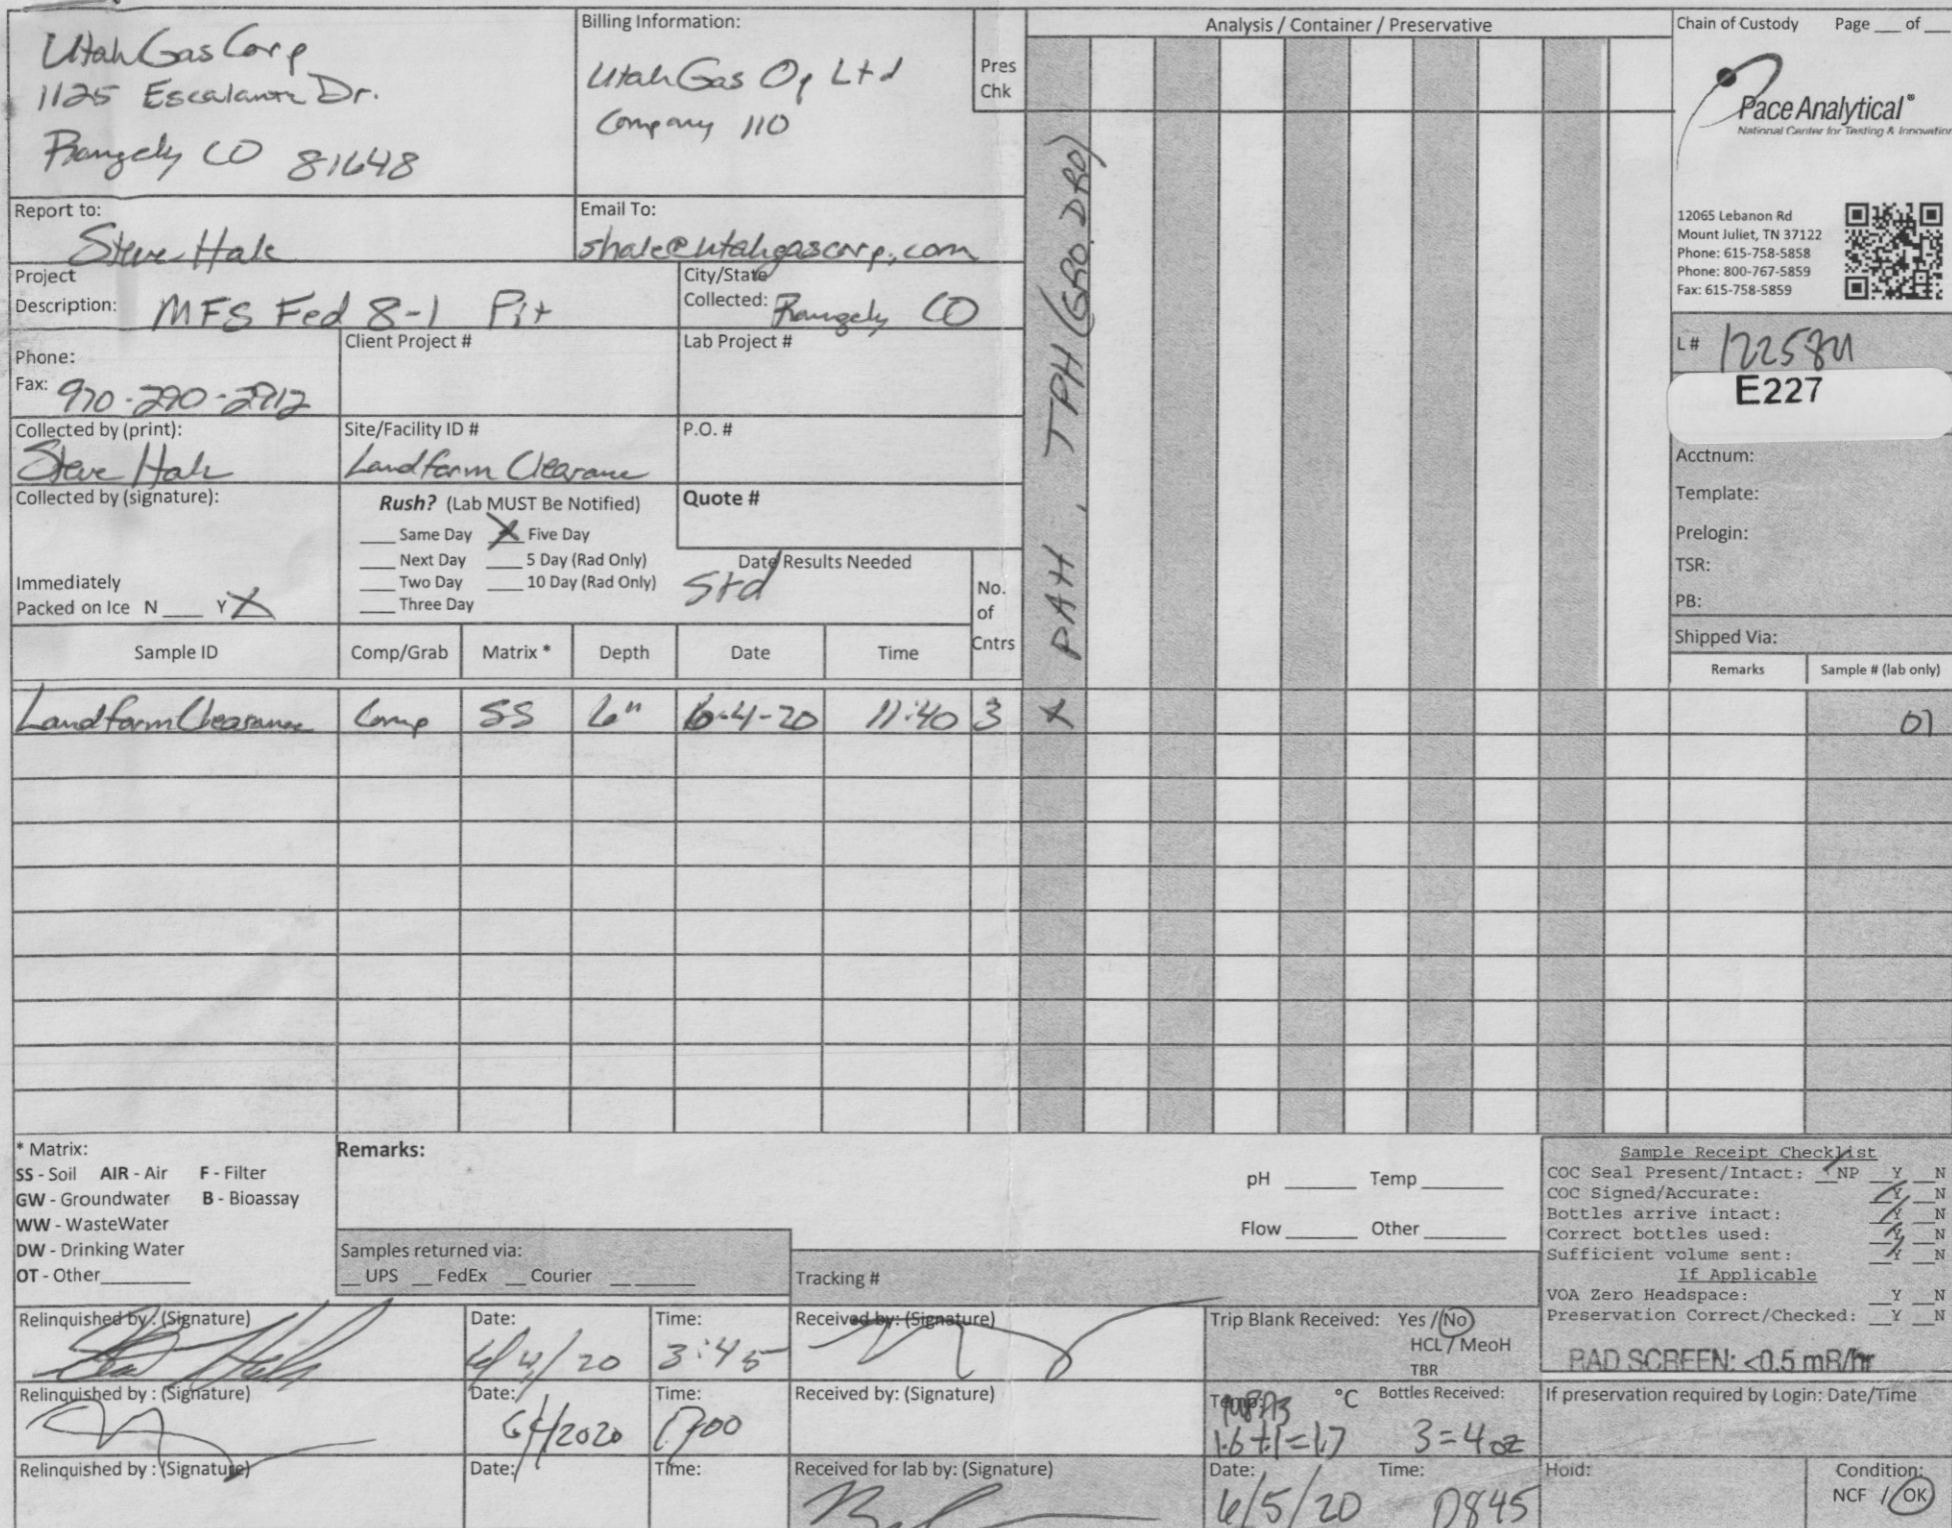 Utah Gas Corp
1125 Escalante Dr.
Rangely CO 81648
Billing Information:
Utah Gas Op Ltd
Company 110
Pres
Chk
Analysis / Container / Preservative
Chain of Custody Page ___ of ___
Pace Analytical®
National Center for Testing & Innovation
12065 Lebanon Rd
Mount Juliet, TN 37122
Phone: 615-758-5858
Phone: 800-767-5859
Fax: 615-758-5859
Report to:
Steve Hale
Email To:
shale@utahgascorp.com
Project
Description: MFS Fed 8-1 Pit
City/State
Collected: Rangely CO
Phone:
Fax: 970-290-2912
Client Project #
Lab Project #
Collected by (print):
Steve Hale
Site/Facility ID #
Landfarm Clearance
P.O. #
Collected by (signature):
Rush? (Lab MUST Be Notified)
___ Same Day X Five Day
___ Next Day ___ 5 Day (Rad Only)
___ Two Day ___ 10 Day (Rad Only)
___ Three Day
Quote #
Date Results Needed
Std
Immediately
Packed on Ice N ___ Y X
No.
of
Cntrs
PAH, TPH (GRO, DRO)
L #
E227
Acctnum:
Template:
Prelogin:
TSR:
PB:
Shipped Via:
Sample ID Comp/Grab Matrix * Depth Date Time Remarks Sample # (lab only)
Landfarm Clearance Comp SS 6" 6-4-20 11:40 3 X 01
* Matrix:
SS - Soil AIR - Air F - Filter
GW - Groundwater B - Bioassay
WW - WasteWater
DW - Drinking Water
OT - Other___
Remarks:
pH ___ Temp ___
Flow ___ Other ___
Samples returned via:
__ UPS __ FedEx __ Courier __ ___
Tracking #
Sample Receipt Checklist
COC Seal Present/Intact: __NP __Y __N
COC Signed/Accurate: __Y __N
Bottles arrive intact: __Y __N
Correct bottles used: __Y __N
Sufficient volume sent: __Y __N
If Applicable
VOA Zero Headspace: __Y __N
Preservation Correct/Checked: __Y __N
RAD SCREEN: <0.5 mR/hr
Relinquished by : (Signature)
Date:
6/4/20
Time:
3:45
Received by: (Signature)
Trip Blank Received: Yes / No
HCL / MeoH
TBR
Relinquished by : (Signature)
Date:
6/4/2020
Time:
1700
Received by: (Signature)
Temp: °C
1.6+.1=1.7
Bottles Received:
3=4oz
If preservation required by Login: Date/Time
Relinquished by : (Signature)
Date:
Time:
Received for lab by: (Signature)
Date:
6/5/20
Time:
0845
Hold:
Condition:
NCF / OK